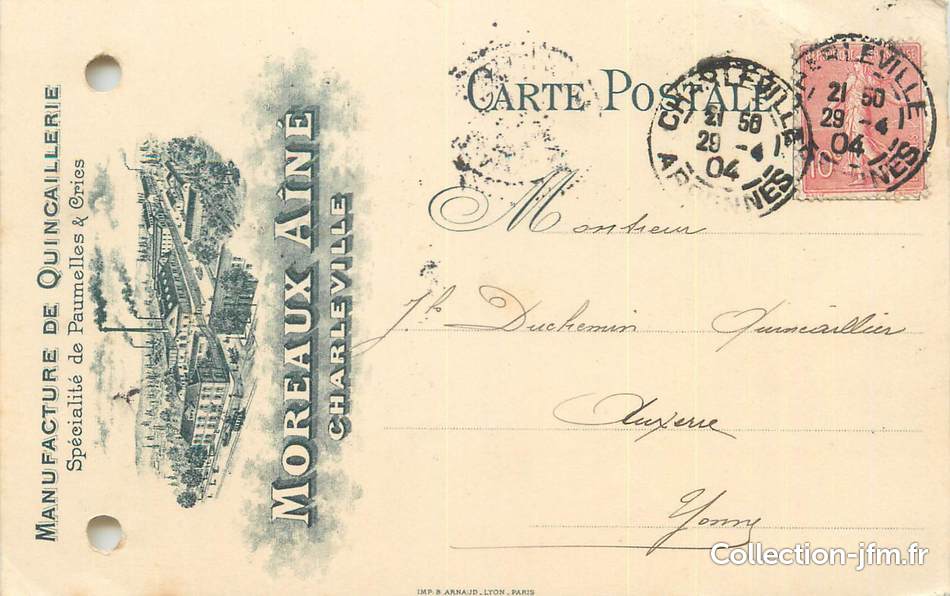 MANUFACTURE DE QUINCAILLERIE
Spécialité de Paumelles & Crics
MOREAUX AÎNÉ
CHARLEVILLE
CARTE POSTALE
CHARLEVILLE
21 50
29 - 4
04
ARDENNES
CHARLEVILLE
21 50
29 - 4
04
ARDENNES
10
Monsieur
Duchemin Quincaillier
Auxerre
Yonne
IMP. B. ARNAUD_LYON_PARIS
Collection-jfm.fr